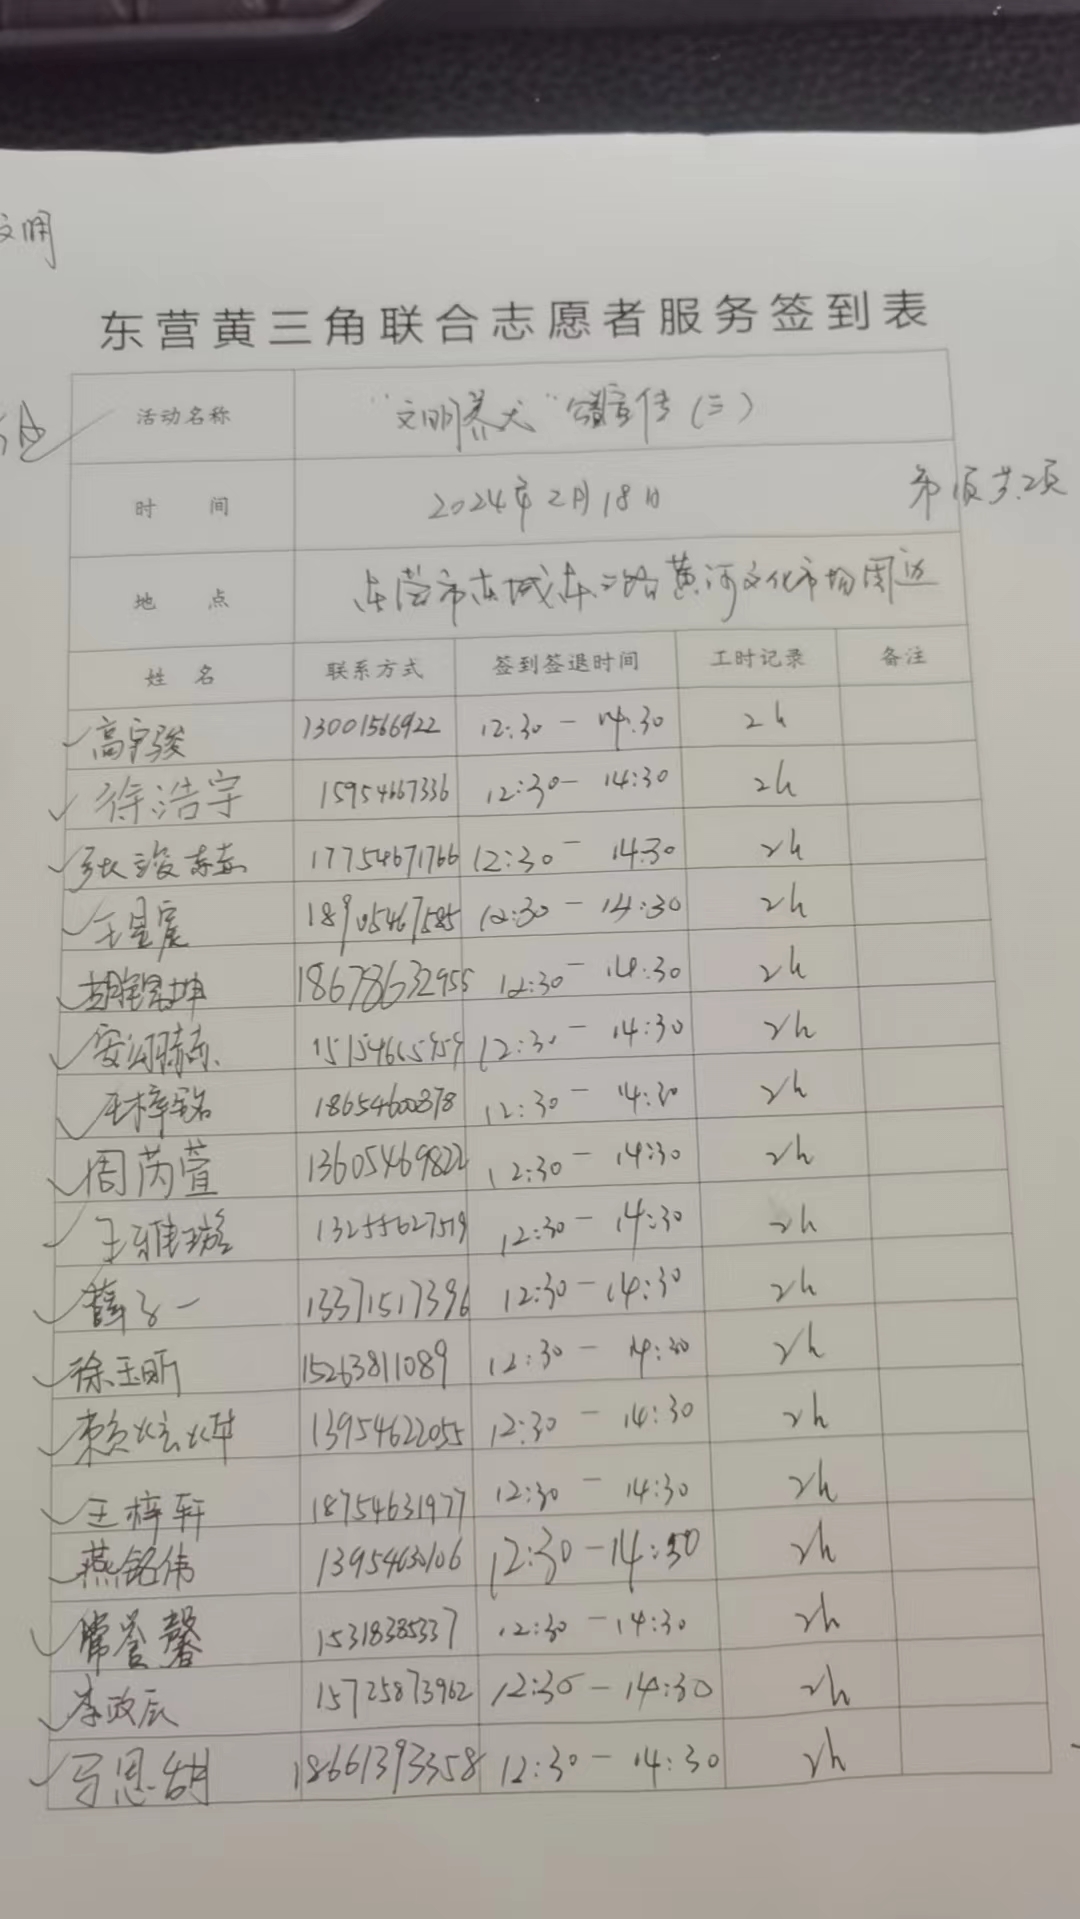 文明
东营黄三角联合志愿者服务签到表
活动名称 "文明养犬"公益宣传(三)
时 间 2024年2月18日 第1页共2页
地 点 东营市东城东二路黄河文化市场周边
姓 名 联系方式 签到签退时间 工时记录 备注
高宇骏 13001566922 12:30-14:30 2h
徐浩宇 15954667336 12:30-14:30 2h
17754671766 12:30-14:30 2h
王星宸 18905467585 12:30-14:30 2h
18678632955 12:30-14:30 2h
12:30-14:30 2h
王梓铭 18654600878 12:30-14:30 2h
周芮萱 13605469822 12:30-14:30 2h
王雅璇 13255627519 12:30-14:30 2h
薛子一 13371517396 12:30-14:30 2h
徐玉昕 15263811089 12:30-14:30 2h
赖炫烨 13954622055 12:30-14:30 2h
王梓轩 18754631977 12:30-14:30 2h
燕铭伟 13954630106 12:30-14:30 2h
常誉馨 15318385337 12:30-14:30 2h
李政辰 15725873962 12:30-14:30 2h
18661393358 12:30-14:30 2h